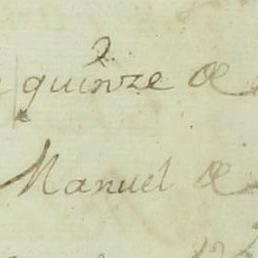 quinze de
Manuel de